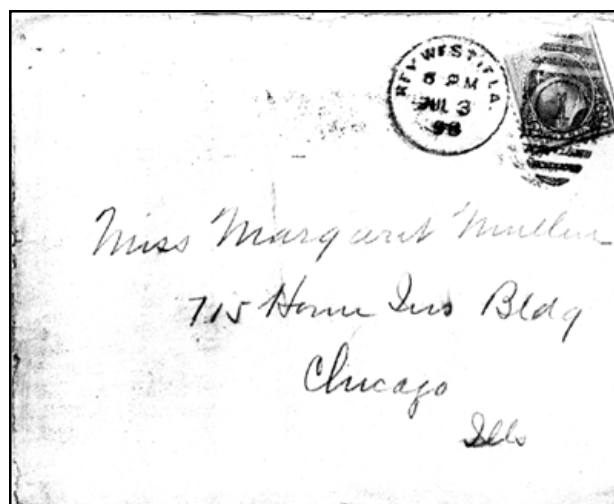 KEY WEST, FLA.
6 PM
JUL 3
98
Miss Margaret Mullen
715 Home Ins Bldg
Chicago
Ills